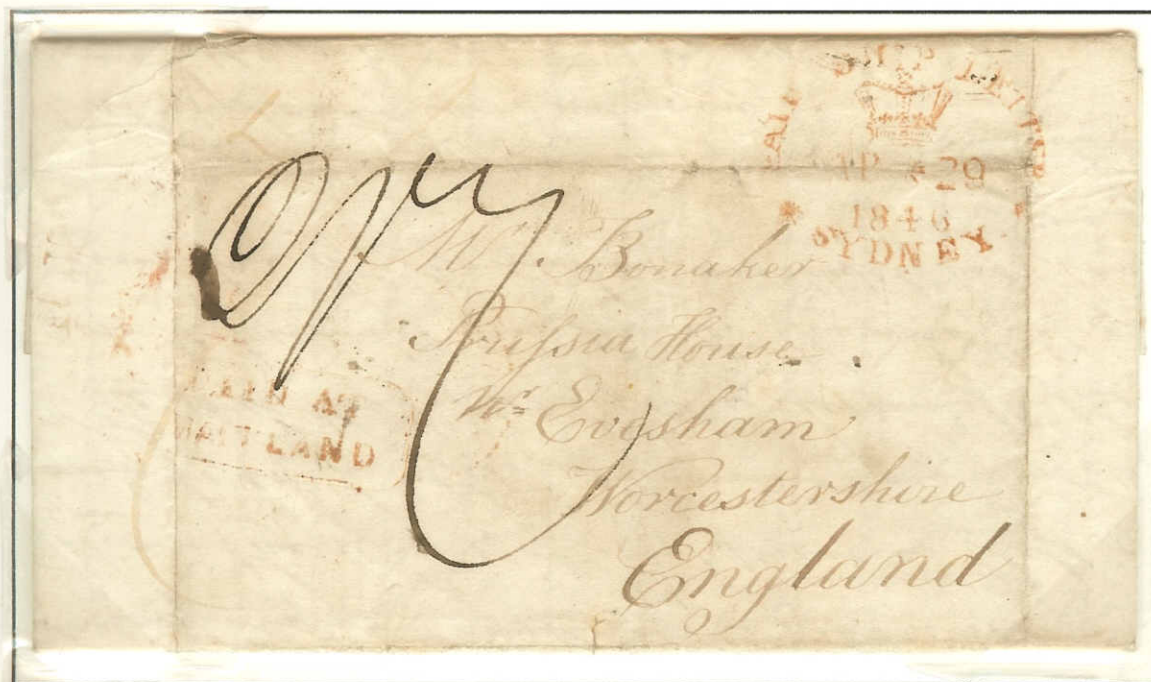 PAID SHIP LETTER
AP 29
1846
SYDNEY
Mr. Bonaker
Prussia House
Nr Evesham
Worcestershire
England
PAID AT
MAITLAND